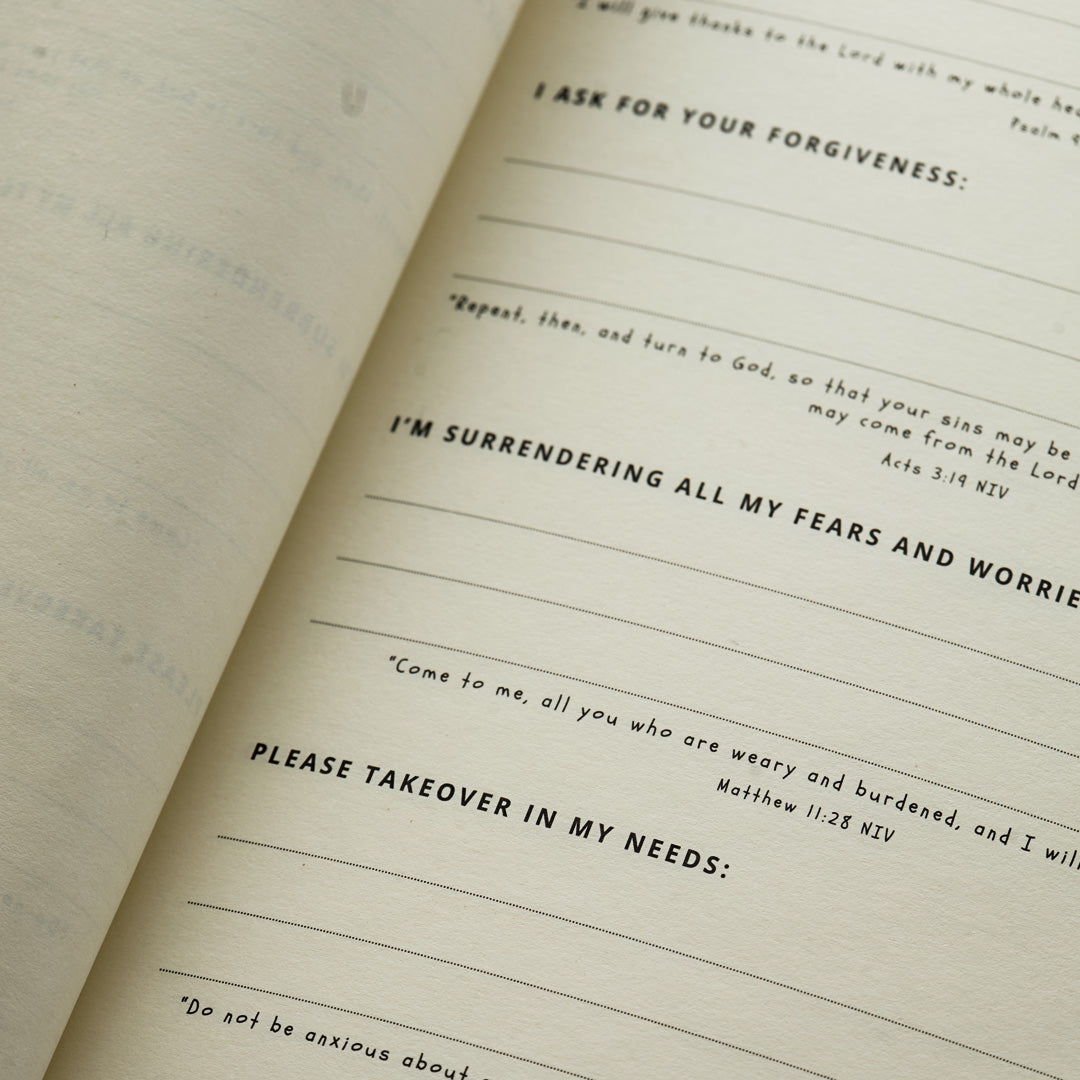 I will give thanks to the Lord with my whole
Psalm
I ASK FOR YOUR FORGIVENESS:
"Repent, then, and turn to God, so that your sins may be
may come from the Lord
Acts 3:19 NIV
I'M SURRENDERING ALL MY FEARS AND
"Come to me, all you who are weary and burdened, and I will
Matthew 11:28 NIV
PLEASE TAKEOVER IN MY NEEDS:
"Do not be anxious about